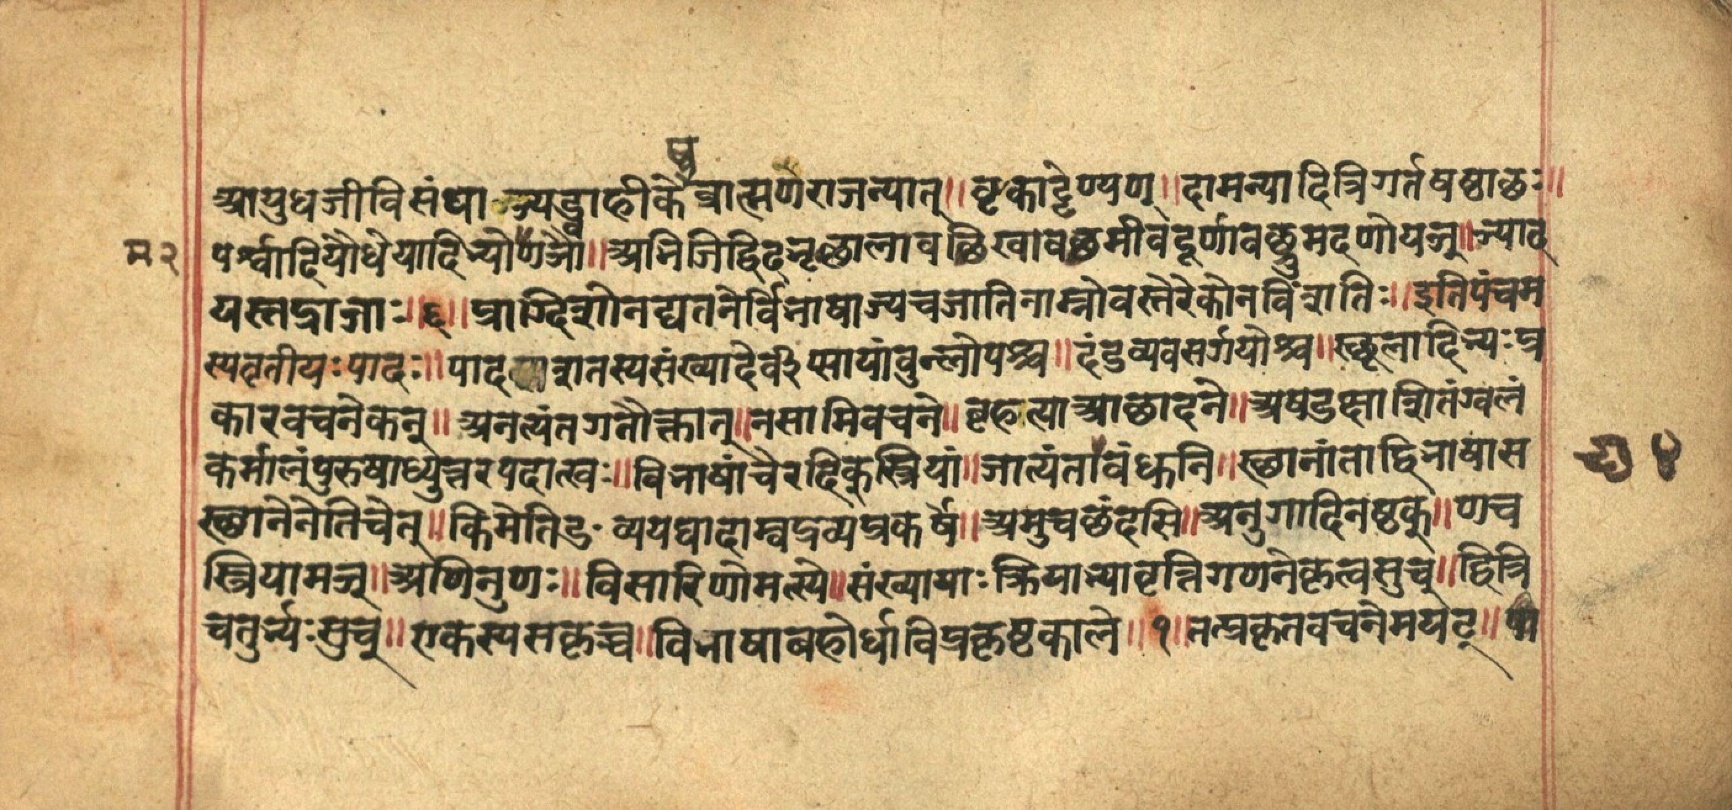 ष्व
आयुधजीविसंघा ञ्यड्वाहीकेब्रात्मणराजन्यात्॥ वृकाट्टेण्यण्॥ दामन्यादित्रिगर्तषष्ठाछः॥
पर्श्वादियौधेयादिभ्योणञौ॥ अभिजिद्विदभृछालावछिखावछमीवदूर्णावछ्रुमदणोयञ्॥ ञ्याद
यस्तद्राजाः॥६॥ प्राग्दिशोनद्यतनेर्विभाषाज्यचजातिनाम्नोवस्तेरेकोनविंशतिः॥ इतिपंचम
स्यतृतीयःपादः॥ पाद शतस्यसंख्यादेर्वीप्सायांवुन्लोपश्च॥ दंडव्यवसर्गयोश्च॥ स्छूलादिभ्यःप्र
कारवचनेकन्॥ अनत्यंतगतौक्तात्॥ नसामिवचने॥ बृहत्याआछादने॥ अषडक्षाशितंग्वलं
कर्मालंपुरुषाध्युत्तरपदात्खः॥ विभाषांचेरदिक्स्त्रियां॥ जात्यंताछंधनि॥ स्छानांताद्विभाषास
स्छानेनेतिचेत्॥ किमेतिङव्ययघादाम्वद्रव्यप्रकर्षे॥ अमुचछंदसि॥ अनुगादिनष्ठक्॥ णच
स्त्रियामञ्॥ अणिनुणः॥ विसारिणोमत्स्ये॥ संख्यायाः क्रियाभ्यावृत्तिगणनेकृत्वसुच्॥ द्वित्रि
चतुर्भ्यःसुच्॥ एकस्यसकृच्च॥ विभाषाबहोर्धाविप्रकृष्टकाले॥१॥ तत्प्रकृतवचनेमयट्॥